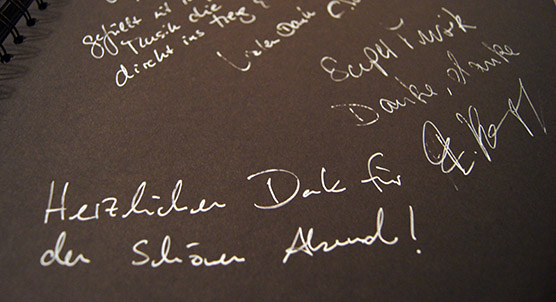 gefüllt mit
Musik die
direkt ins Herz
Vielen Dank
Danke, danke
Herzlichen Dank für
den schönen Abend!